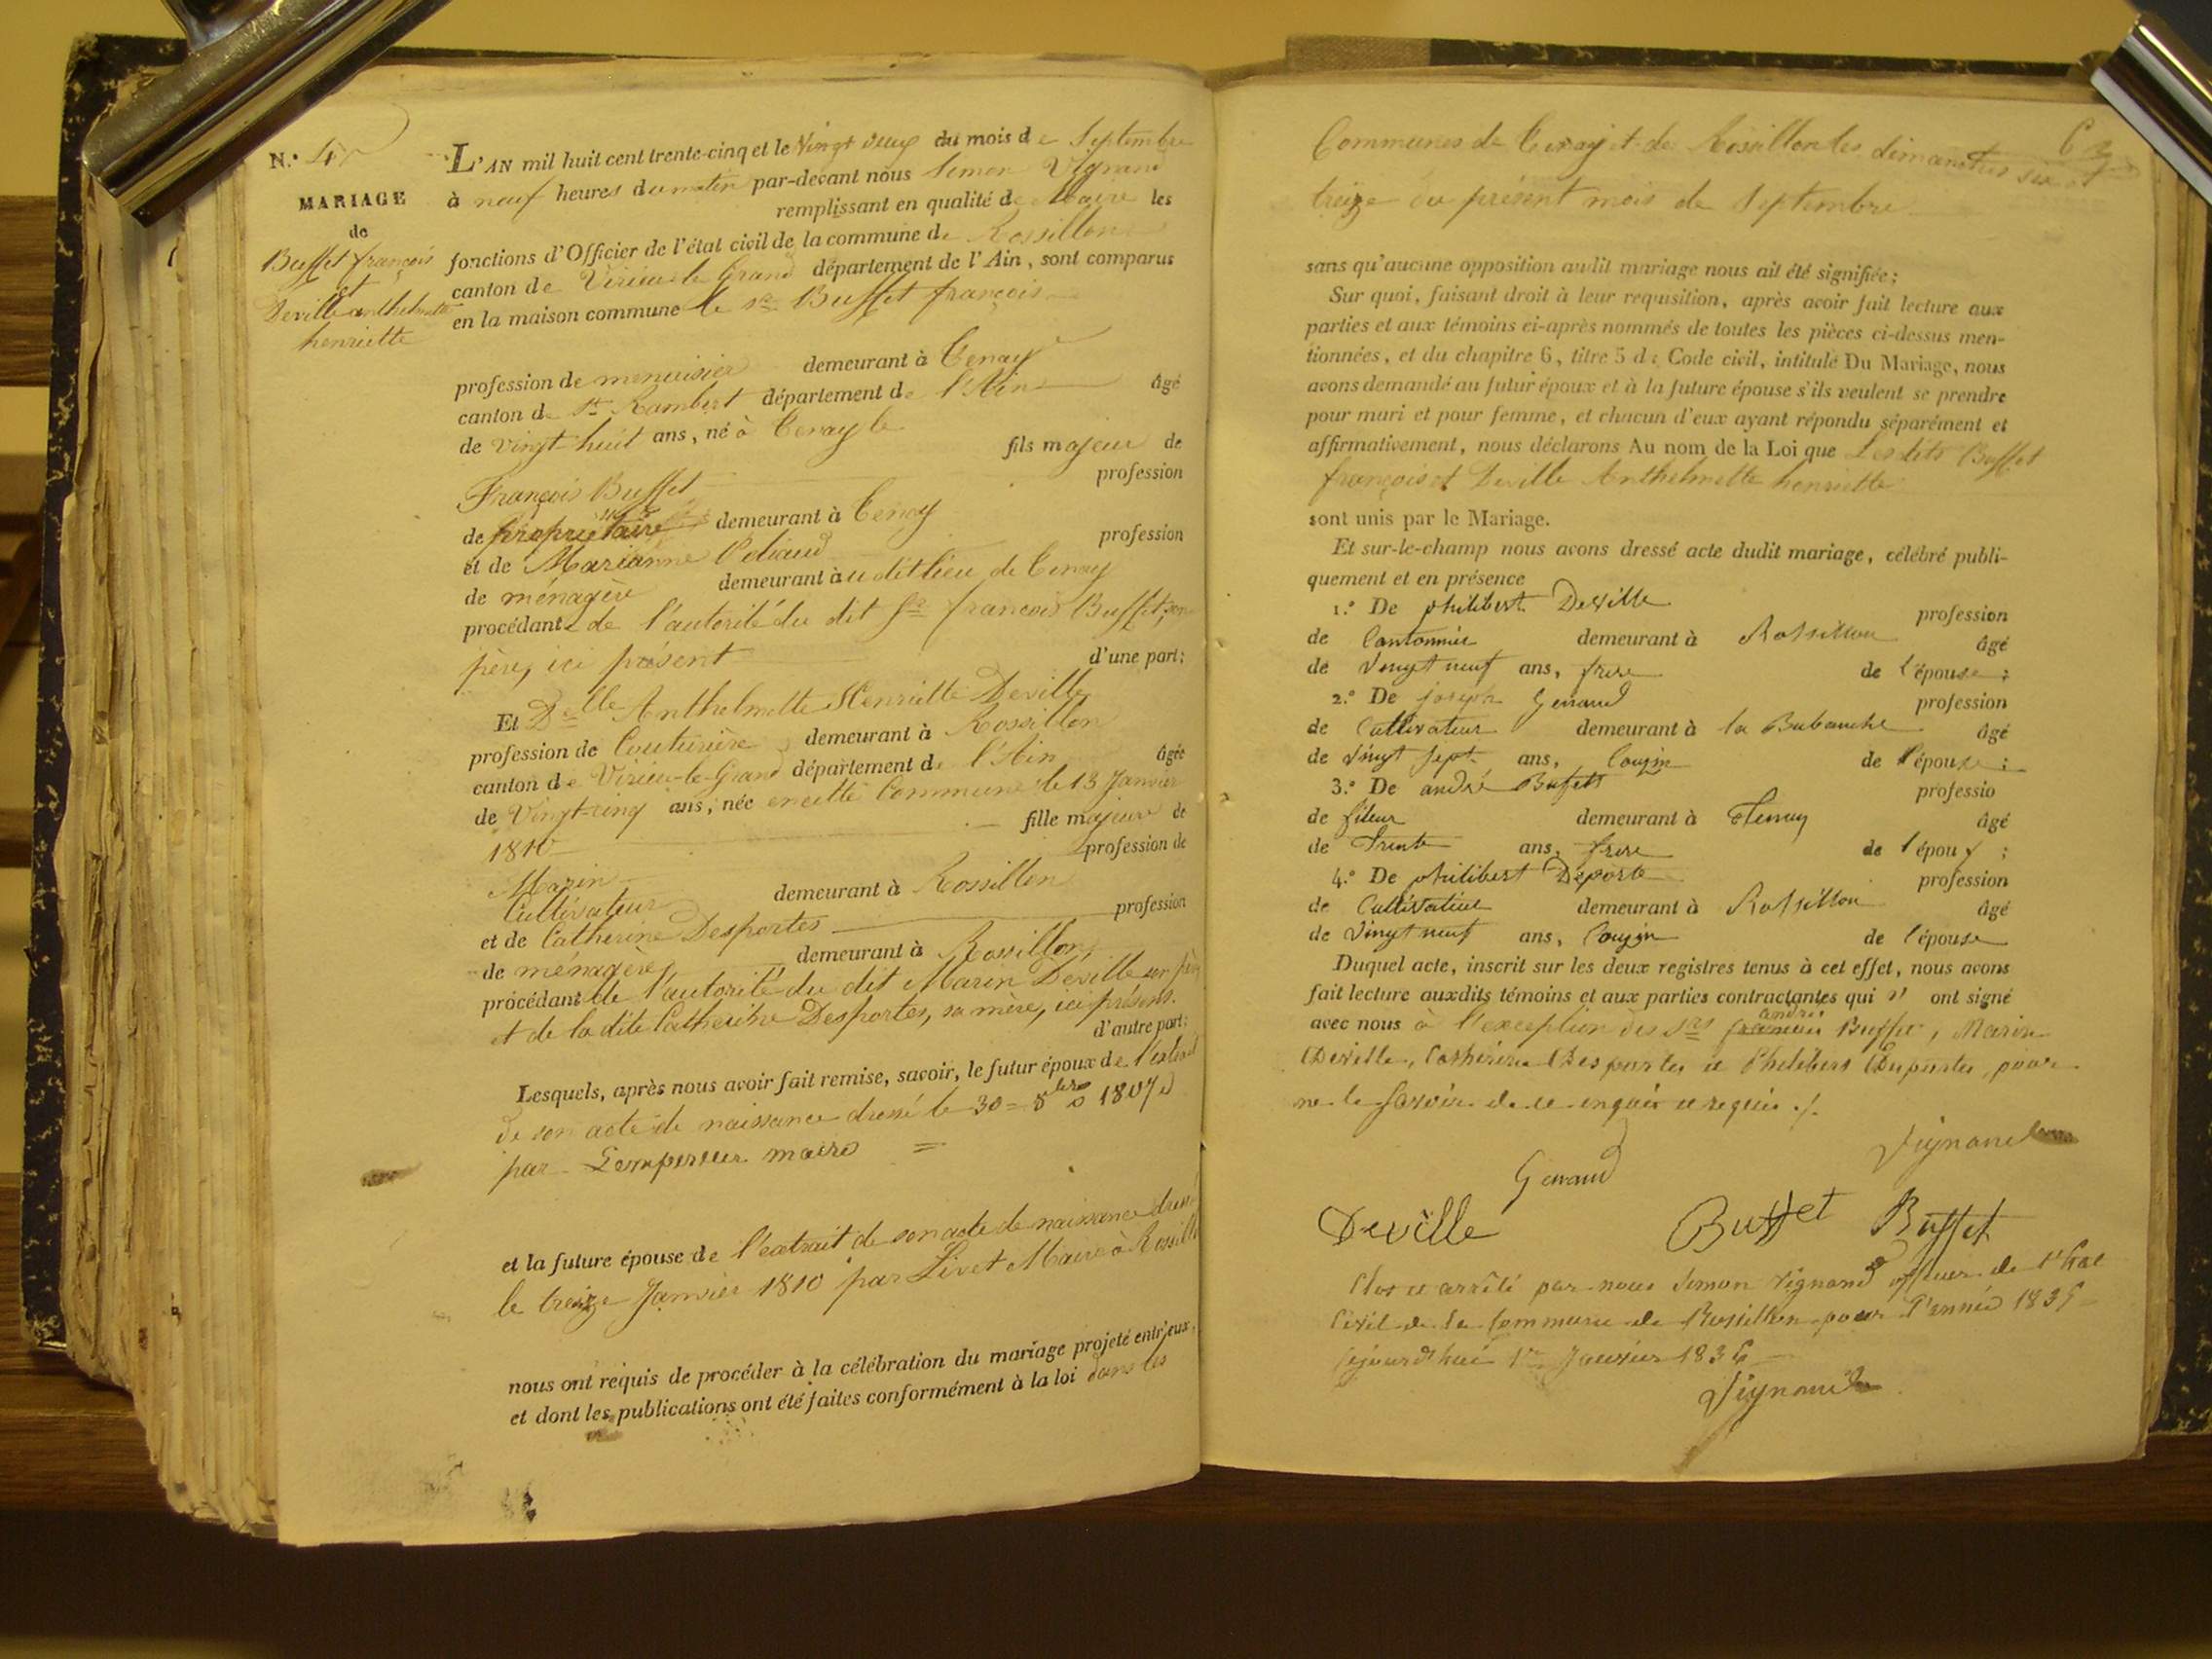 N.°
MARIAGE
de
Buffet françois
et
Deville anthelmette
henriette
L'AN mil huit cent trente-cinq et le Vingt deux du mois de Septembre
à neuf heures du matin par-devant nous Simon Vignand
remplissant en qualité de Maire les
fonctions d'Officier de l'état civil de la commune de Rossillon
canton de Virieu-le-Grand département de l'Ain, sont comparus
en la maison commune le sr. Buffet françois
profession de menuisier demeurant à Tenay
canton de St. Rambert département de l'Ain âgé
de vingt-huit ans, né à Tenay le
fils majeur de
François Buffet profession
de propriétaire demeurant à Tenay
et de Marianne profession
de ménagère demeurant àu dit lieu de Tenay
procédant de l'autorité du dit Sr. francois Buffet, son
père, ici présent d'une part;
Et Delle Anthelmette Henriette Deville
profession de Couturière demeurant à Rossillon
canton de Virieu-le-Grand département de l'Ain âgée
de Vingt-cinq ans, née en cette Commune le 13 Janvier
1810 fille majeure de
Marin profession de
Cultivateur demeurant à Rossillon
et de Catherine Desportes profession
de ménagère demeurant à Rossillon,
procédant de l'autorité du dit Marin Deville son père
et de la dite Catherine Desportes, sa mère, ici présens.
d'autre part;
Lesquels, après nous avoir fait remise, savoir, le futur époux de l'extrait
de son acte de naissance dressé le 30 = 8bre 1807
par Lempereur maire =
et la future épouse de l'extrait de son acte de naissance dressé
le treize Janvier 1810 par Livet Maire à Rossillon
nous ont requis de procéder à la célébration du mariage projeté entr'eux,
et dont les publications ont été faites conformément à la loi dans les
Communes de Tenay et de Rossillon les dimanches six et
treize du présent mois de Septembre
sans qu'aucune opposition audit mariage nous ait été signifiée;
Sur quoi, faisant droit à leur requisition, après avoir fait lecture aux
parties et aux témoins ci-après nommés de toutes les pièces ci-dessus men-
tionnées, et du chapitre 6, titre 5 du Code civil, intitulé Du Mariage, nous
avons demandé au futur époux et à la future épouse s'ils veulent se prendre
pour mari et pour femme, et chacun d'eux ayant répondu séparément et
affirmativement, nous déclarons Au nom de la Loi que Lesdits Buffet
françois et Deville Anthelmette henriette
sont unis par le Mariage.
Et sur-le-champ nous avons dressé acte dudit mariage, célébré publi-
quement et en présence
1.° De philibert Deville profession
de Cantonnier demeurant à Rossillon âgé
de Vingt neuf ans, frere de l'épouse;
2.° De joseph Genaud profession
de Cultivateur demeurant à la Bubanche âgé
de Vingt sept ans, Cousin de l'épouse;
3.° De andré Buffett professio
de fileur demeurant à Tenay âgé
de Trente ans, frere de l'époux;
4.° De philibert Deporte profession
de Cultivateur demeurant à Rossillon âgé
de Vingt neuf ans, Cousin de l'épouse
Duquel acte, inscrit sur les deux registres tenus à cet effet, nous avons
fait lecture auxdits témoins et aux parties contractantes qui ont signé
avec nous à l'exception des srs françois andré Buffet, Marin
Deville, Catherine Desportes et Philibert Duportes, pour
ne le savoir de ce enquis et requis ./.
Vignand
Genaud
Deville Buffet Buffet
Clos et arrêté par nous Simon Vignand officier de l'état
Civil de la Commune de Rossillon pour l'année 1835
aujourd'hui 1er Janvier 1836
Vignand